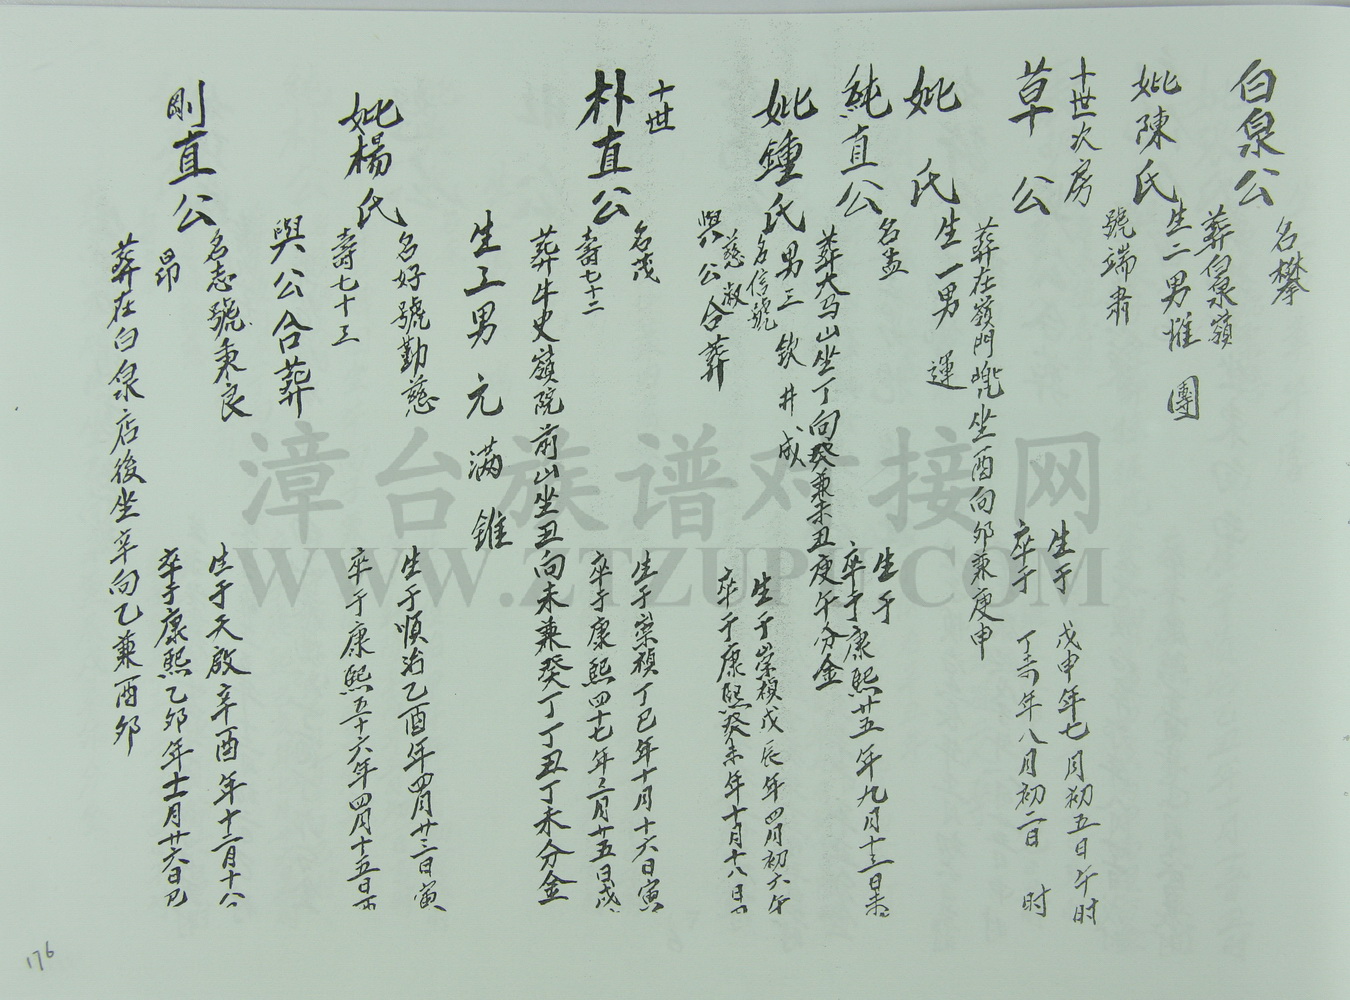 白泉公
名攀
葬白泉嶺
妣陳氏
生二男惟 團
號端肅
十世次房
草 公
生于 戊申年七月初五日午时
卒于 丁亥年八月初二日 时
葬在嶺門兜坐酉向卯兼庚申
妣 氏
生一男 運
純直公
名孟
生于
卒于康熙廿五年九月十三日未
葬大马山坐丁向癸兼未丑庚午分金
妣鍾氏
男三 欽 井 成
名信號
慈淑
與公合葬
生于崇禎戊辰年四月初六午
卒于康熙癸未年十月十八日
十世
朴直公
名茂
壽七十二
生于崇禎丁巳年十月十六日寅
卒于康熙四十七年三月廿五日戌
葬牛史嶺院前山坐丑向未兼癸丁丁丑丁未分金
生三男 元 满 錐
妣楊氏
名好號勤慈
壽七十三
生于順治乙酉年四月廿三日寅
卒于康熙五十六年四月十五日酉
與公合葬
剛直公
名志號秉良
昴
生于天啟辛酉年十二月十八
卒于康熙乙卯年十一月廿六日巳
葬在白泉店後坐辛向乙兼酉卯
漳台族谱对接网
WWW.ZTZUPU.COM
176